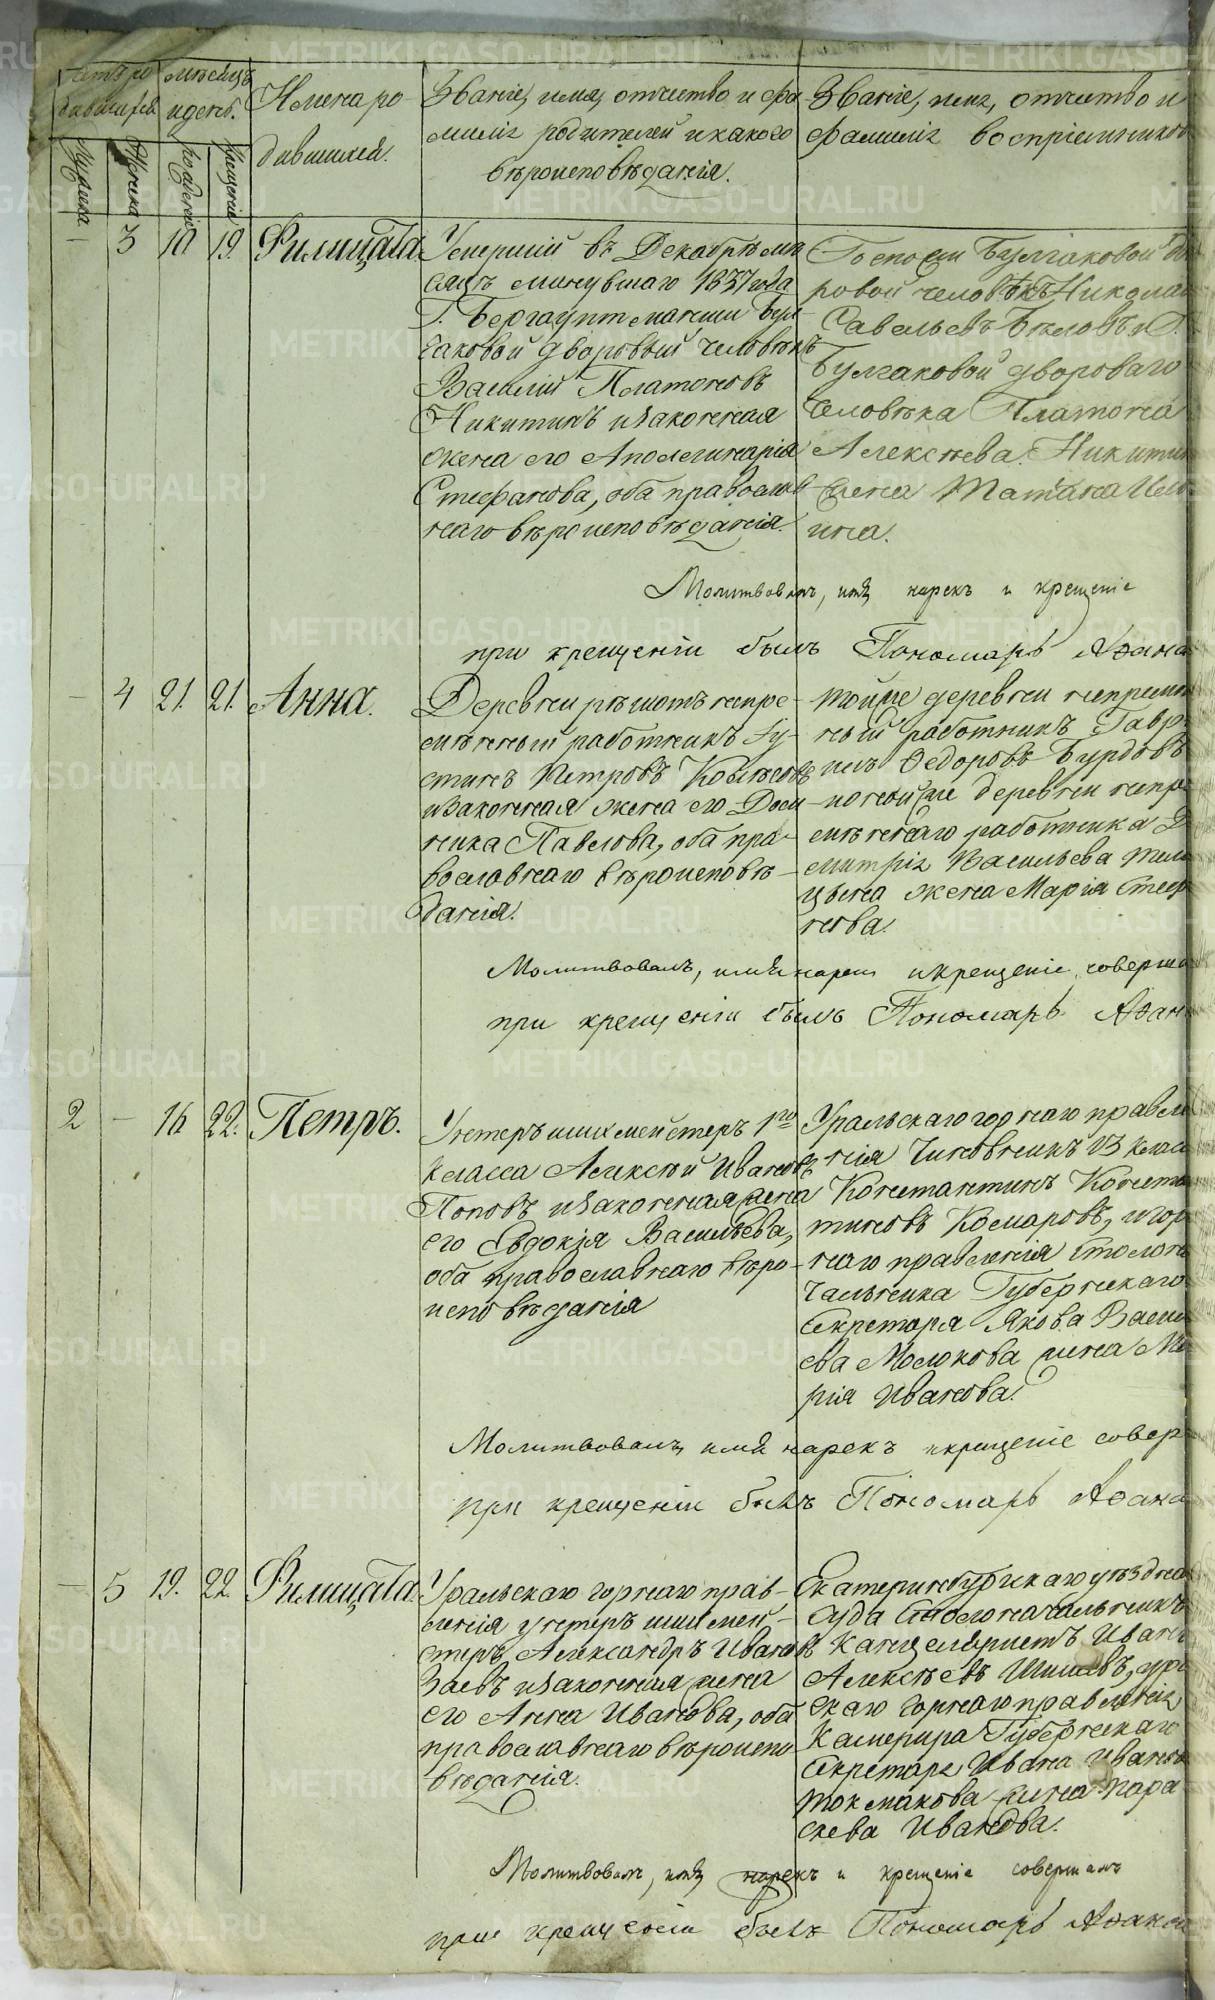 Имена ро-
дившихся.
Званіе, имя, отчество и фа-
миліи родителей и какого
вѣроисповѣданія.
Званіе, имя, отчество и
фамиліи воспріемниковъ
мѣсяцъ
и день.
Мужеска
Женска
рожденія
крещенія
— 3 10 19. Филицата.
Умершій въ Декабрѣ мѣ-
сяцѣ минувшаго 1837 года
Г. Бергауптманши Бул-
гаковой дворовый человѣкъ
Василій Платоновъ
Никитинъ и законная
жена его Аполлинарія
Стефанова, оба православ-
наго вѣроисповѣданія.
Госпожи Булгаковой дво-
ровой человѣкъ Николай
Савельевъ Бѣловъ и Г.
Булгаковой двороваго
человѣка Платона
Алексѣева Никитина
жена Татіана
ина.
Молитвовалъ, имя нарекъ и крещеніе
при крещеніи былъ Пономарь Афана
— 4 21. 21. Анна.
Деревни Рѣшотъ непре-
мѣнный работникъ Іу-
стинъ Петровъ
и законная жена его Дом-
ника Павлова, оба пра-
вославнаго вѣроисповѣ-
данія.
тойже деревни непремѣн
ный работникъ Гаврі-
илъ Ѳедоровъ Бурдовъ
и тойже деревни непре
мѣннаго работника Ди
митрія Васильева
цына жена Марія Стефа
нова.
Молитвовалъ, имя нарекъ и крещеніе соверша
при крещеніи былъ Пономарь Афан
2 — 16 22. Петръ.
Унтеръ шихмейстеръ 1го
класса Алексѣй Ивановъ
Поповъ и законная жена
его Евдокія Васильева,
оба православнаго вѣро-
исповѣданія
Уральскаго горнаго правле
нія Чиновникъ 13 класса
Константинъ Констан
тиновъ Комаровъ, и гор
наго правленія Столона
чальника Губернскаго
Секретаря Якова Василь
ева Молокова жена Ма
рія Иванова.
Молитвовалъ имя нарекъ и крещеніе совер
при крещеніи былъ Пономарь Афана
— 5 19. 22. Филицата.
Уральскаго горнаго прав-
ленія унтеръ шихмей-
стеръ Александръ Ивановъ
Заевъ и законная жена
его Анна Иванова, оба
православнаго вѣроиспо-
вѣданія.
Екатеринбургскаго уѣзднаго
Суда Столоначальникъ
Канцеляристъ Иванъ
Алексѣевъ Шишовъ, ураль
скаго горнаго правленія
Камерира Губернскаго
Секретаря Ивана Иванова
Токмакова жена Пара
скева Иванова.
Молитвовалъ, имя нарекъ и крещеніе совершалъ
при крещеніи былъ Пономарь Афанас
METRIKI.GASO-URAL.RU